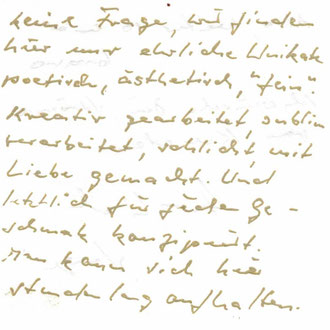 keine Frage, wir finden
hier nur ehrliche Unikate
poetisch, ästhetisch, "fein".
Kreativ gearbeitet, sublim
verarbeitet, schlicht, mit
Liebe gemacht. Und
letztlich für jeden Ge-
schmak konzipiert.
Man kann sich hier
stundenlang aufhalten.